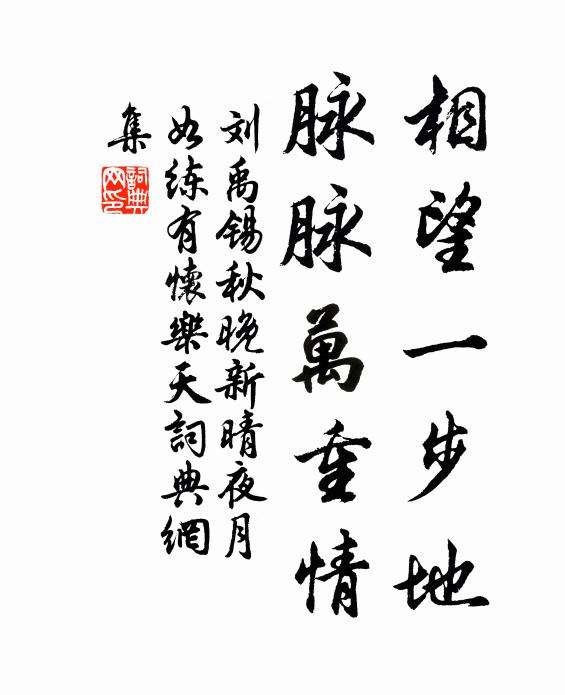 相望一步地
脉脉萬重情
刘禹锡秋晚新晴夜月
如练有懷樂天詞典網
集
詞典
网印